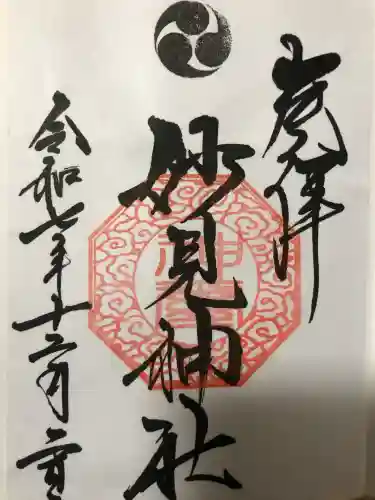 奉拝
妙見神社
令和七年十二月二